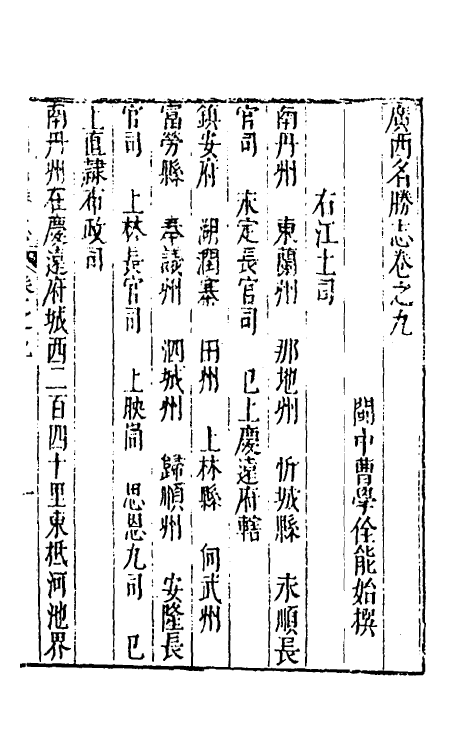 廣西名勝志卷之九
閩中曹學佺能始撰
右江土司
南丹州　東蘭州　那地州　忻城縣　永順長
官司　永定長官司　已上慶遠府轄
鎮安府　湖潤寨　田州　上林縣　向武州
富勞縣　奉議州　泗城州　歸順州　安隆長
官司　上林長官司　上映峒　思恩九司　已
上直隸布政司
南丹州在慶遠府城西二百四十里東抵河池界
卷之九　一